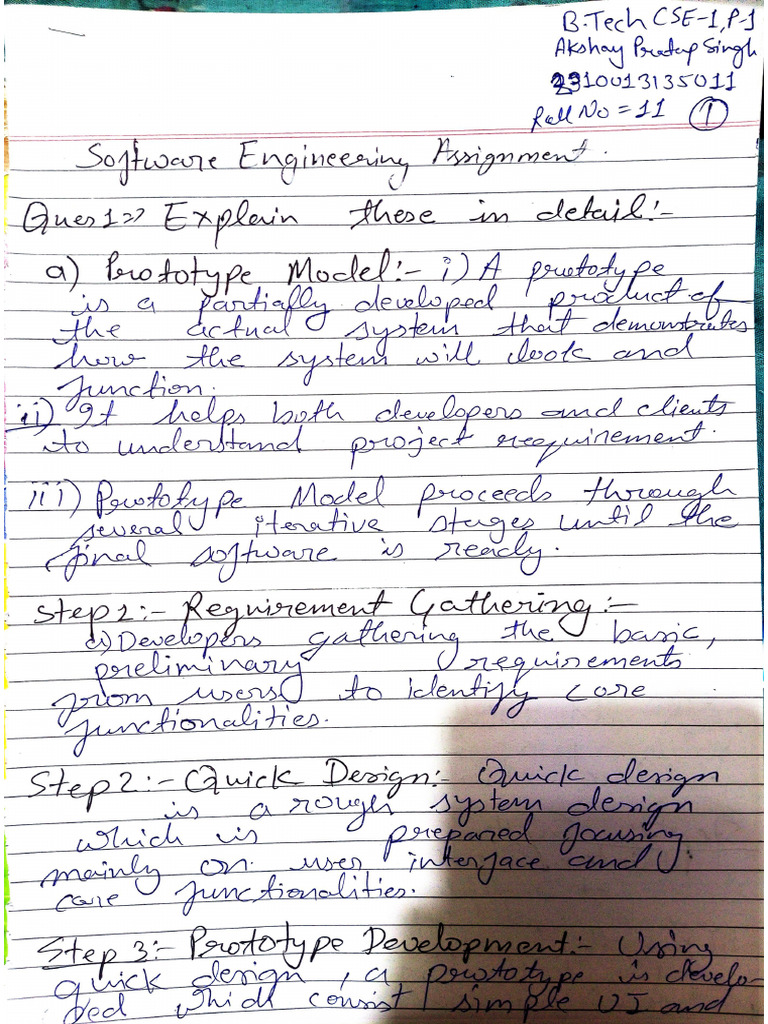 B.Tech CSE-1, P-1
Akshay Pratap Singh
2310013135011
Roll No = 11 ①
Software Engineering Assignment.
Ques 1 => Explain these in detail:-
a) Prototype Model:- i) A prototype
is a partially developed product of
the actual system that demonstrates
how the system will look and
function.
ii) It helps both developers and clients
to understand project requirement.
iii) Prototype Model proceeds through
several iterative stages until the
final software is ready.
Step 1:- Requirement Gathering:-
a) Developers gathering the basic,
preliminary requirements
from users to identify core
functionalities.
Step 2:- Quick Design:- Quick design
is a rough system design
which is prepared focusing
mainly on user interface and
core functionalities.
Step 3:- Prototype Development:- Using
quick design, a prototype is develo-
ped which consist simple UI and